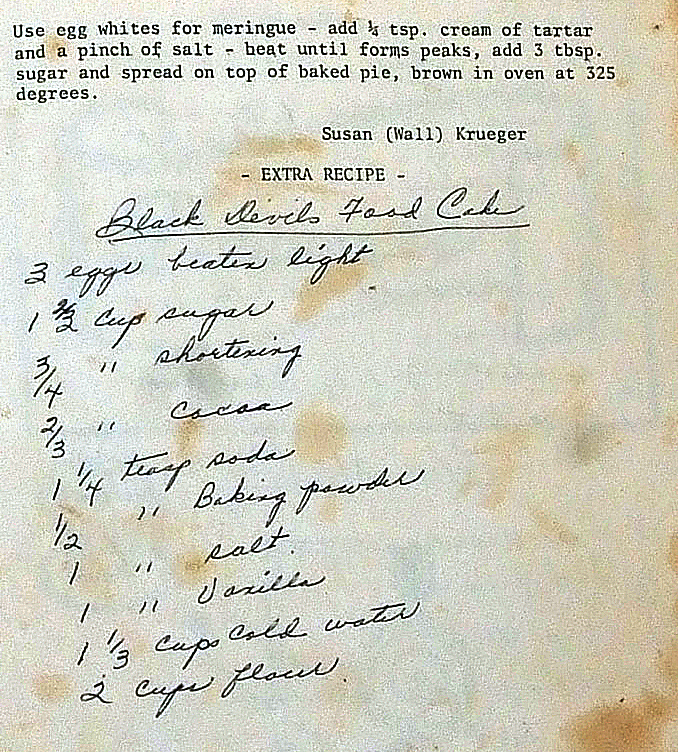 Use egg whites for meringue - add ¼ tsp. cream of tartar
and a pinch of salt - beat until forms peaks, add 3 tbsp.
sugar and spread on top of baked pie, brown in oven at 325
degrees.
Susan (Wall) Krueger
- EXTRA RECIPE -
Black Devils Food Cake
3 eggs beaten light
1 2/3 cup sugar
3/4 " shortening
2/3 " Cocoa
1 1/4 teasp soda
1/2 " Baking powder
1 " salt.
1 " Vanilla
1 1/3 cups cold water
2 cups flour.